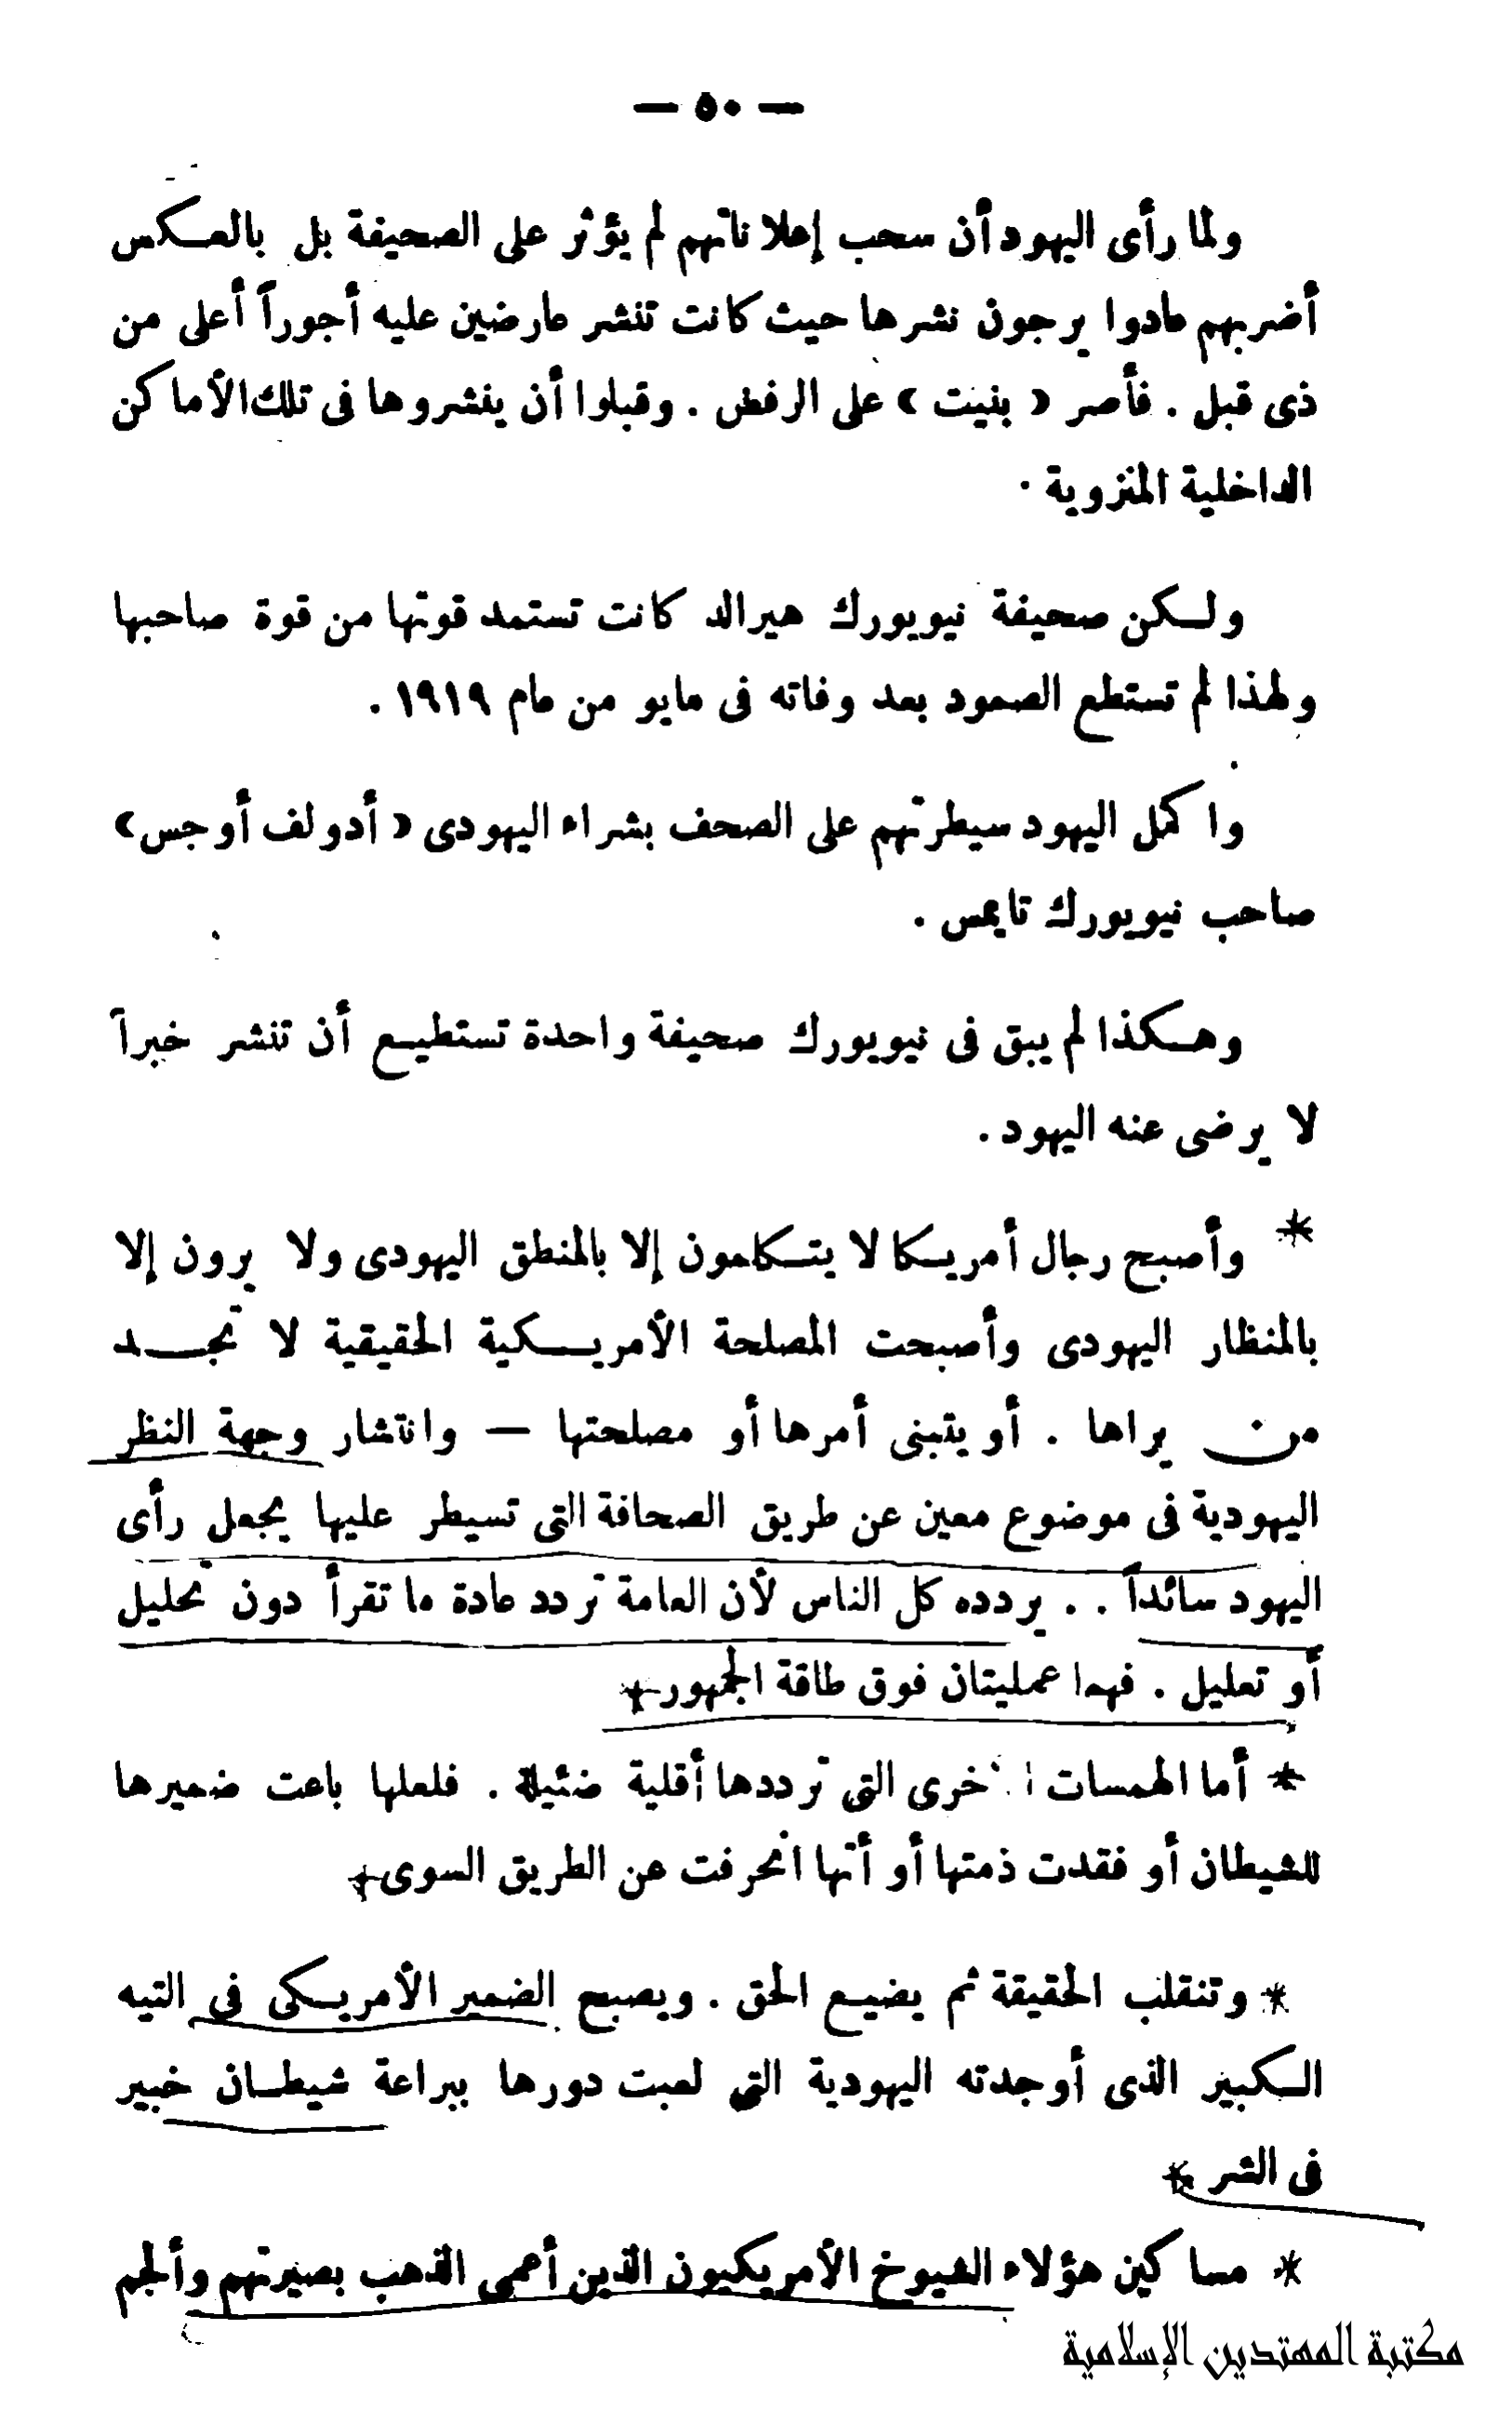 — ٥٠ —
ولما رأى اليهود أن سحب إعلاناتهم لم يؤثر على الصحيفة بل بالعكس
أضربهم عادوا يرجون نشرها حيث كانت تنشر عارضين عليه أجوراً أعلى من
ذى قبل . فأصر « بنيت » على الرفض . وقبلوا أن ينشروها فى تلك الأماكن
الداخلية المنزوية .
ولكن صحيفة نيويورك هيرالد كانت تستمد قوتها من قوة صاحبها
ولهذا لم تستطع الصمود بعد وفاته فى مايو من عام ١٩١٩ .
واكمل اليهود سيطرتهم على الصحف بشراء اليهودى « أدولف أوجس »
صاحب نيويورك تايمس .
وهكذا لم يبق فى نيويورك صحيفة واحدة تستطيع أن تنشر خبراً
لا يرضى عنه اليهود .
* وأصبح رجال أمريكا لا يتكلمون إلا بالمنطق اليهودى ولا يرون إلا
بالمنظار اليهودى وأصبحت المصلحة الأمريكية الحقيقية لا تجد
من يراها . أو يتبنى أمرها أو مصلحتها — وانتشار وجهة النظر
اليهودية فى موضوع معين عن طريق الصحافة التى تسيطر عليها يجعل رأى
اليهود سائداً . . يردده كل الناس لأن العامة تردد عادة ما تقرأ دون تحليل
أو تعليل . فهما عمليتان فوق طاقة الجمهور *
* أما الهمسات الأخرى التى ترددها أقلية ضئيلة . فلعلها باعت ضميرها
للشيطان أو فقدت ذمتها أو أنها انحرفت عن الطريق السوى *
* وتنقلب الحقيقة ثم يضيع الحق . ويصبح الضمير الأمريكى فى التيه
الكبير الذى أوجدته اليهودية التى لعبت دورها ببراعة شيطان خبير
فى الشر *
* مساكين هؤلاء الشيوخ الأمريكيون الذين أعمى الذهب بصيرتهم وألجم
مكتبة المهتدين الإسلامية